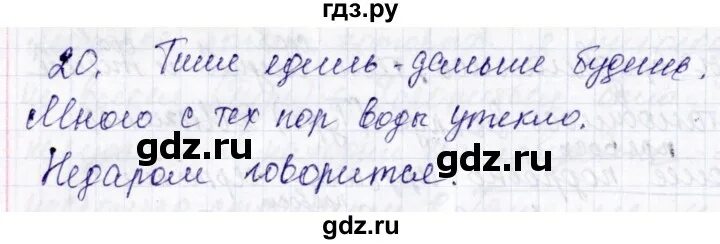 гдз.ру
20. Тише едешь - дальше будешь.
Много с тех пор воды утекло.
gdz.ru gdz.ru
Недаром говорится.
gdz.ru